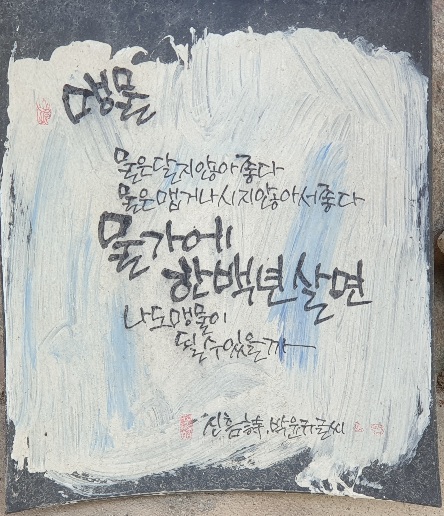 맹물
물은 달지 않아 좋다
물은 맵거나 시지 않아서 좋다
물가에
한백년 살면
나도 맹물이
될 수 있을까
신흠 詩, 박윤규 글씨